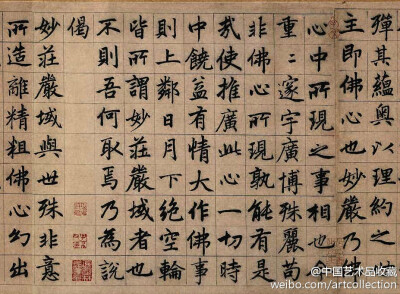 彈其蘊奧以理約之
主即佛心也妙嚴乃佛
心中所現之事相也今
重〻邃宇廣博殊麗苟
非佛心所現孰能有是
哉使推廣此心一切時
中饒益有情大作佛事
則上鄰日月下絕空輪
皆所謂妙莊嚴域者也
不則吾何取焉乃為說
偈
妙莊嚴域與世殊非意
所造離精粗佛心勾出
@中国艺术品收藏
weibo.com/artcollection